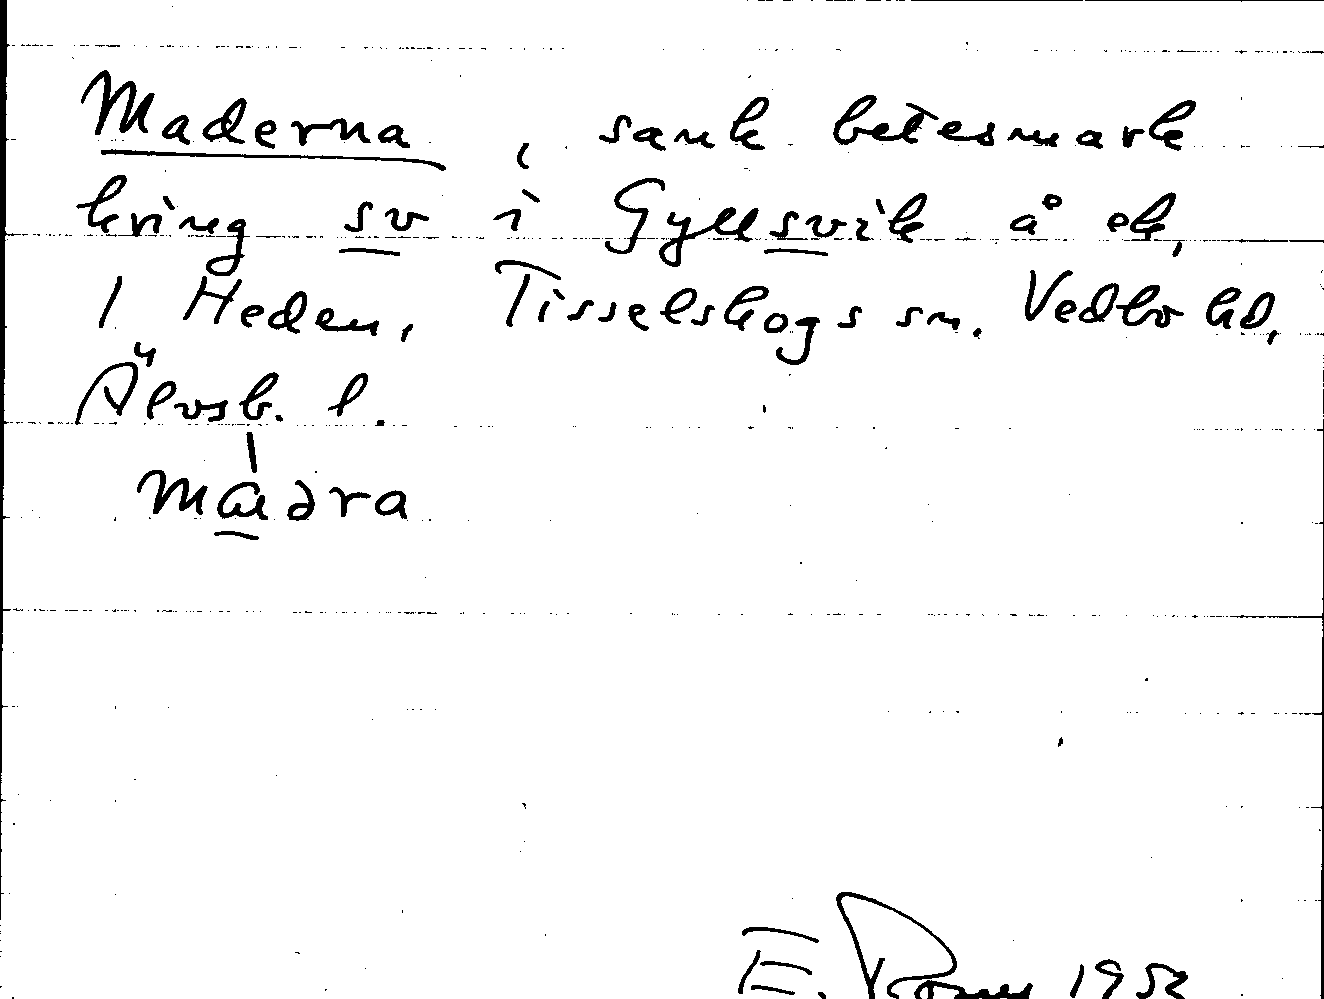 Maderna, sank betesmark
kring sv i Gyllsvik å ek,
1 Heden, Tisselskogs sn. Vedbo hd,
Älvsb. l.
E. 1952